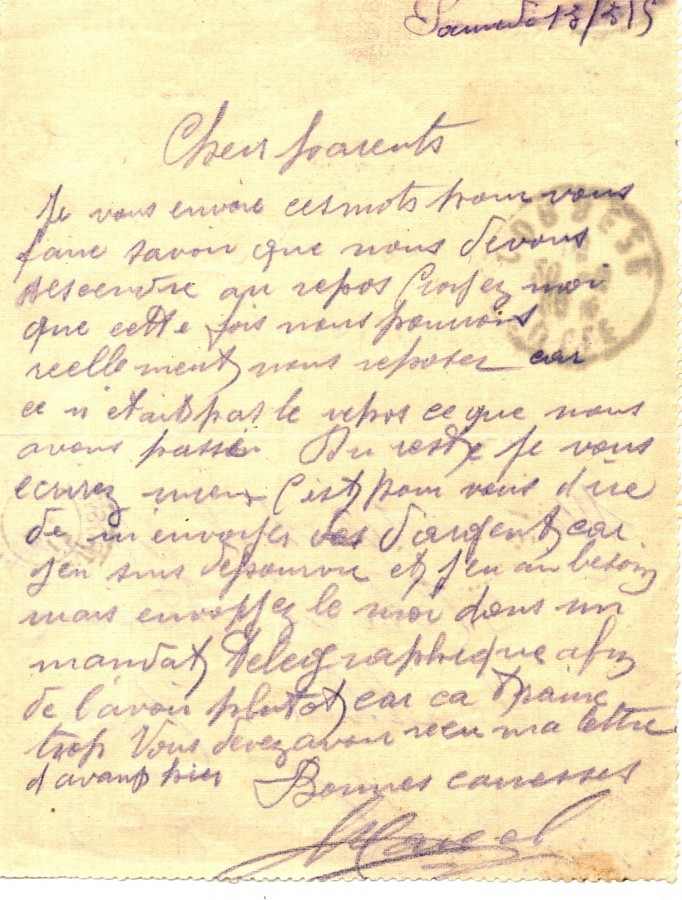 Samedi 13/3/15
Cher parents
Je vous envoie ces mots pour vous
faire savoir que nous devons
descendre au repos Croyez moi
que cette fois nous pourrons
reellement nous reposer car
ce n etait pas le repos ce que nous
avons passé. Au reste je vous
ecrirez mieux C'est pour vous dire
de m envoyer d'argent car
j'en suis depourvu et j'en au besoin
mais envoyez le moi dans un
mandat telegraphique afin
de l'avoir plutot car ca traine
trop Vous devez avoir recu ma lettre
d'avant hier Bonnes caresses
Marcel
CORSE